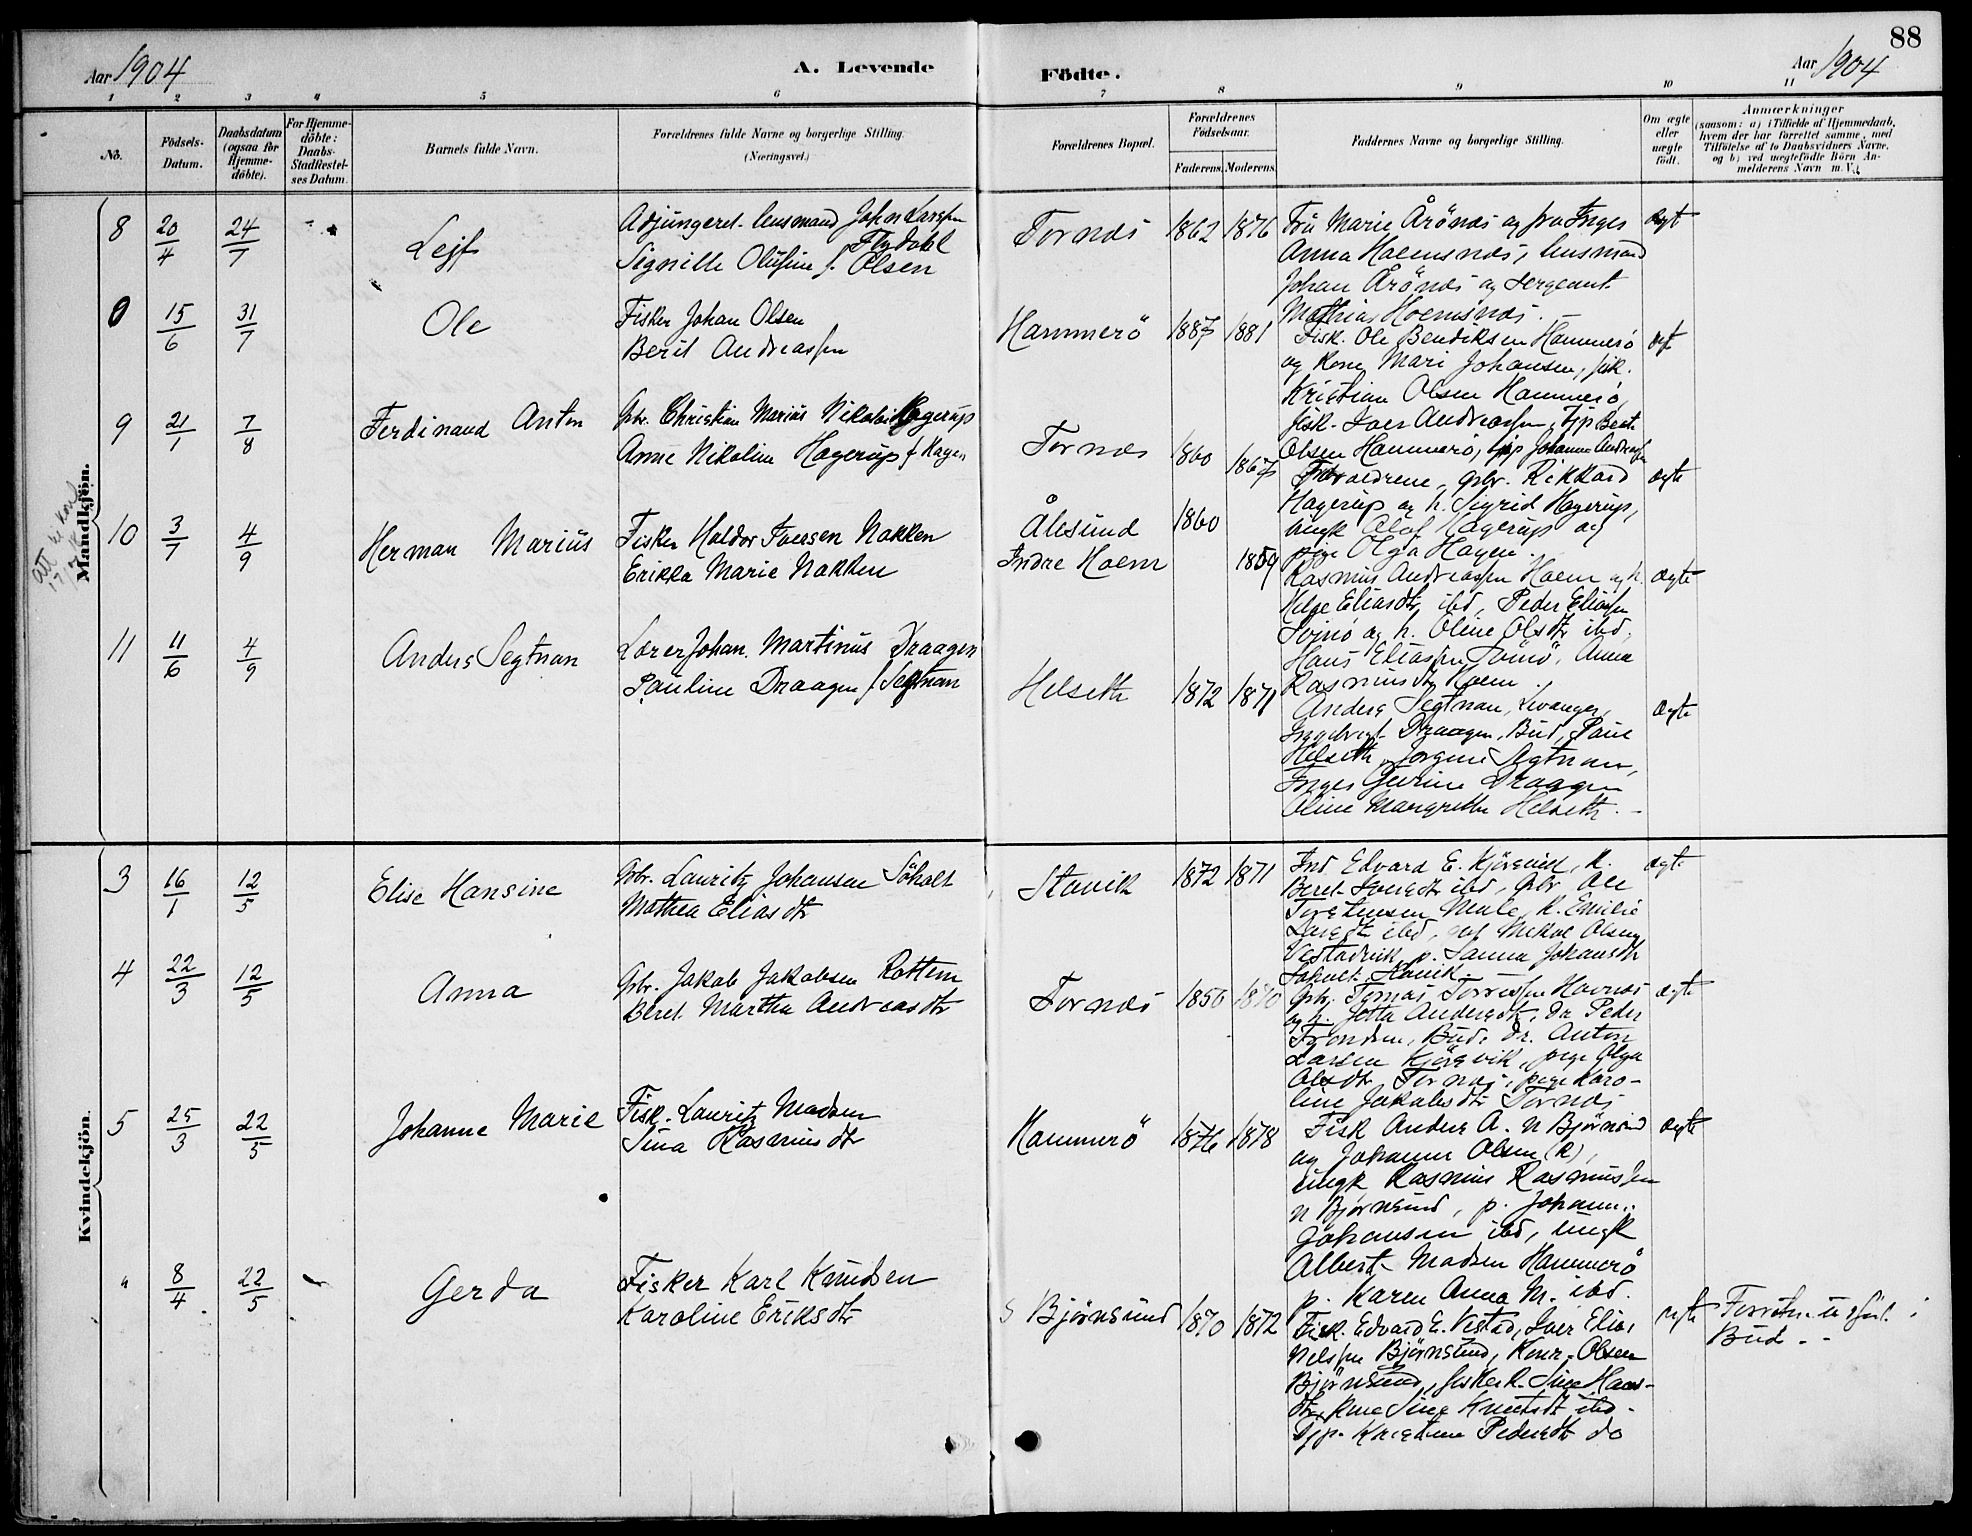 88
Aar 1904
A. Levende
Födte.
Aar 1904
1 2 3 4 5 6 7 8 9 10 11
No.
Födsels-
Datum.
Daabsdatum
(ogsaa for
Hjemme-
döbte).
For Hjemme-
döbte:
Daabs-
Stadfæstel-
ses Datum.
Barnets fulde Navn.
Forældrenes fulde Navne og borgerlige Stilling.
(Næringsvei.)
Forældrenes Bopæl.
Forældrenes
Födselsaar.
Faderens. Moderens.
Faddernes Navne og borgerlige Stilling.
Om ægte
eller
uægte
födt.
Anmærkninger
(saasom: a) i Tilfælde af Hjemmedaab,
hvem der har forrettet samme, med
Tilföielse af to Daabsvidners Navne,
og b) ved uegtefödte Börn An-
melderens Navn m. V.)
Mandkjön.
8 20/4 24/7 Lejf
Adjungeret lensmand John Larssen
Flydahl
Signille Olufine f. Olsen
Tornæs 1862 1876
Fru Marie Årönes og frøken Inges
Anna Hoemsnes, lensmand
Johan Årönes og Sergeant
Mathias Hoemsnes.
Ægt
0 15/6 31/7 Ole
Fisker Johan Olsen
Berit Andreassen
Hammerö 1887 1881
Fisk. Ole Bendiksen Hammerö
og Kone Mari Johansen, fisk.
Kristian Olsen Hammerö,
fisk. Iver Andreassen, tjp Berte
Olsen Hammerö, tjp Johanna Andreassen
9 21/1 7/8 Ferdinand Anton
Gbr. Christian Marius Nikolai Hagerup
Anne Nikoline Hagerup f Hagen
Tornæs 1860 1867
Forældrene, Gbr. Rikkard
Hagerup og h. Sigrid Hagerup,
ungk Olaf Hagerup og
pige Olga Hagen.
ægte
10 3/7 4/9 Herman Marius
Fisker Haldor Iversen Nakken
Erikka Marie Nakken
Ålesund 1860
Indre Hoem 1859
Rasmus Andreassen Hoem og h.
Helge Eliasdtr ibd, Peder Eliassen
og h. Oline Olsdtr ibd,
Hans Eliassen, Anna
Rasmusdtr Hoem.
Ægte
11 11/6 4/9 Anders Segtnan
Lærer Johan Martinus Draagen
Pauline Draagen f Segtnan
Helseth 1872 1871
Anders Segtnan, Levanger,
Ingebrigt Draagen, Bud, Paul
Helseth, Jorgine Segtnan,
Inges Gurine Draagen
Oline Margrethe Helseth.
Ægte
Kvindekjön.
3 16/1 12/5 Elise Hansine
Gbr. Lauritz Johansen Söholt
Mathea Eliasdtr
Stavik 1872 1871
Ind Edvard E. Kjörsvik, K.
Beret Iversdtr ibd, Gbr Ole
Torstensen Male, K. Emilie
Larsdtr ibd, Mikal Olsen
Vestadvik, p. Sanna Johansdtr
Söholt Stavik.
ægte
4 22/3 12/5 Anna
Gbr. Jakob Jakobsen Rottem
Beret Martha Andreasdtr
Tornæs 1856 1870
Gbr. Tomas Torressen Havnæs
og h. Jetta Andersdtr, Dr Peder
Trondsen, Bud, Dr. Anton
Larsen Kjörsvik, pige Olga
Olsdtr Tornæs, pige Karo-
line Jakobsdtr Tornæs
ægte
5 25/3 22/5 Johanne Marie
Fisk. Lauritz Madsen
Sina Rasmusdtr
Hammerö 1876 1878
Fisk Anders A. N Björnsund
og Johanna Olsen (K),
ungk Rasmus Rasmussen
N Björnsund, p. Johann..
Johansen ibd, ungk
Albert Madsen Hammerö
p. Karen Anna M. ibd.
ægte
" 8/4 22/5 Gerda
Fisker Karl Knudsen
Karoline Eriksdtr
S Björnsund 1870 1872
Fisk. Edvard E. Vestad, Iver Elias
Nelssen Björnsund, Konr. Olsen
Björnsund, fisker k. Sine Hans-
dtr, kone Sine Knutsdt ibd.
Tjp. Kristine Pedersdtr do
ægte
Bud.